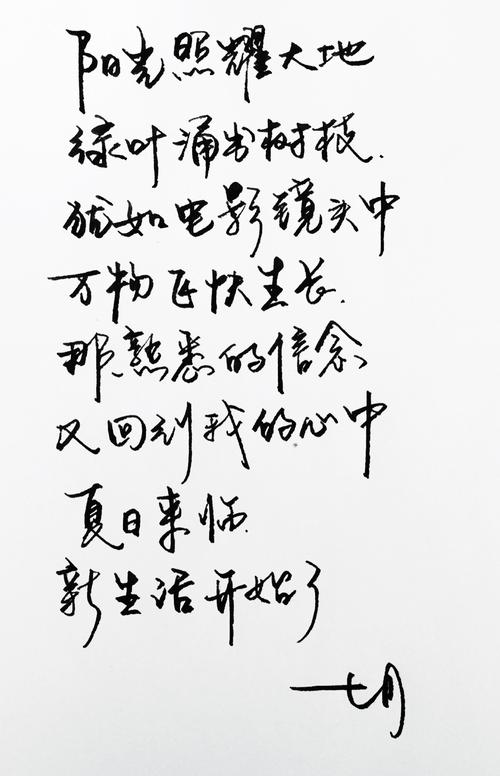 阳光照耀大地
绿叶涌出树枝.
犹如电影镜头中
万物飞快生长.
那熟悉的信念
又回到我的心中
夏日来临.
新生活开始了
一七月